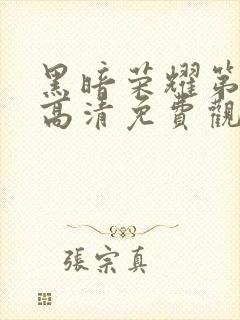 黑暗荣耀第
高清免費觀
張宗真